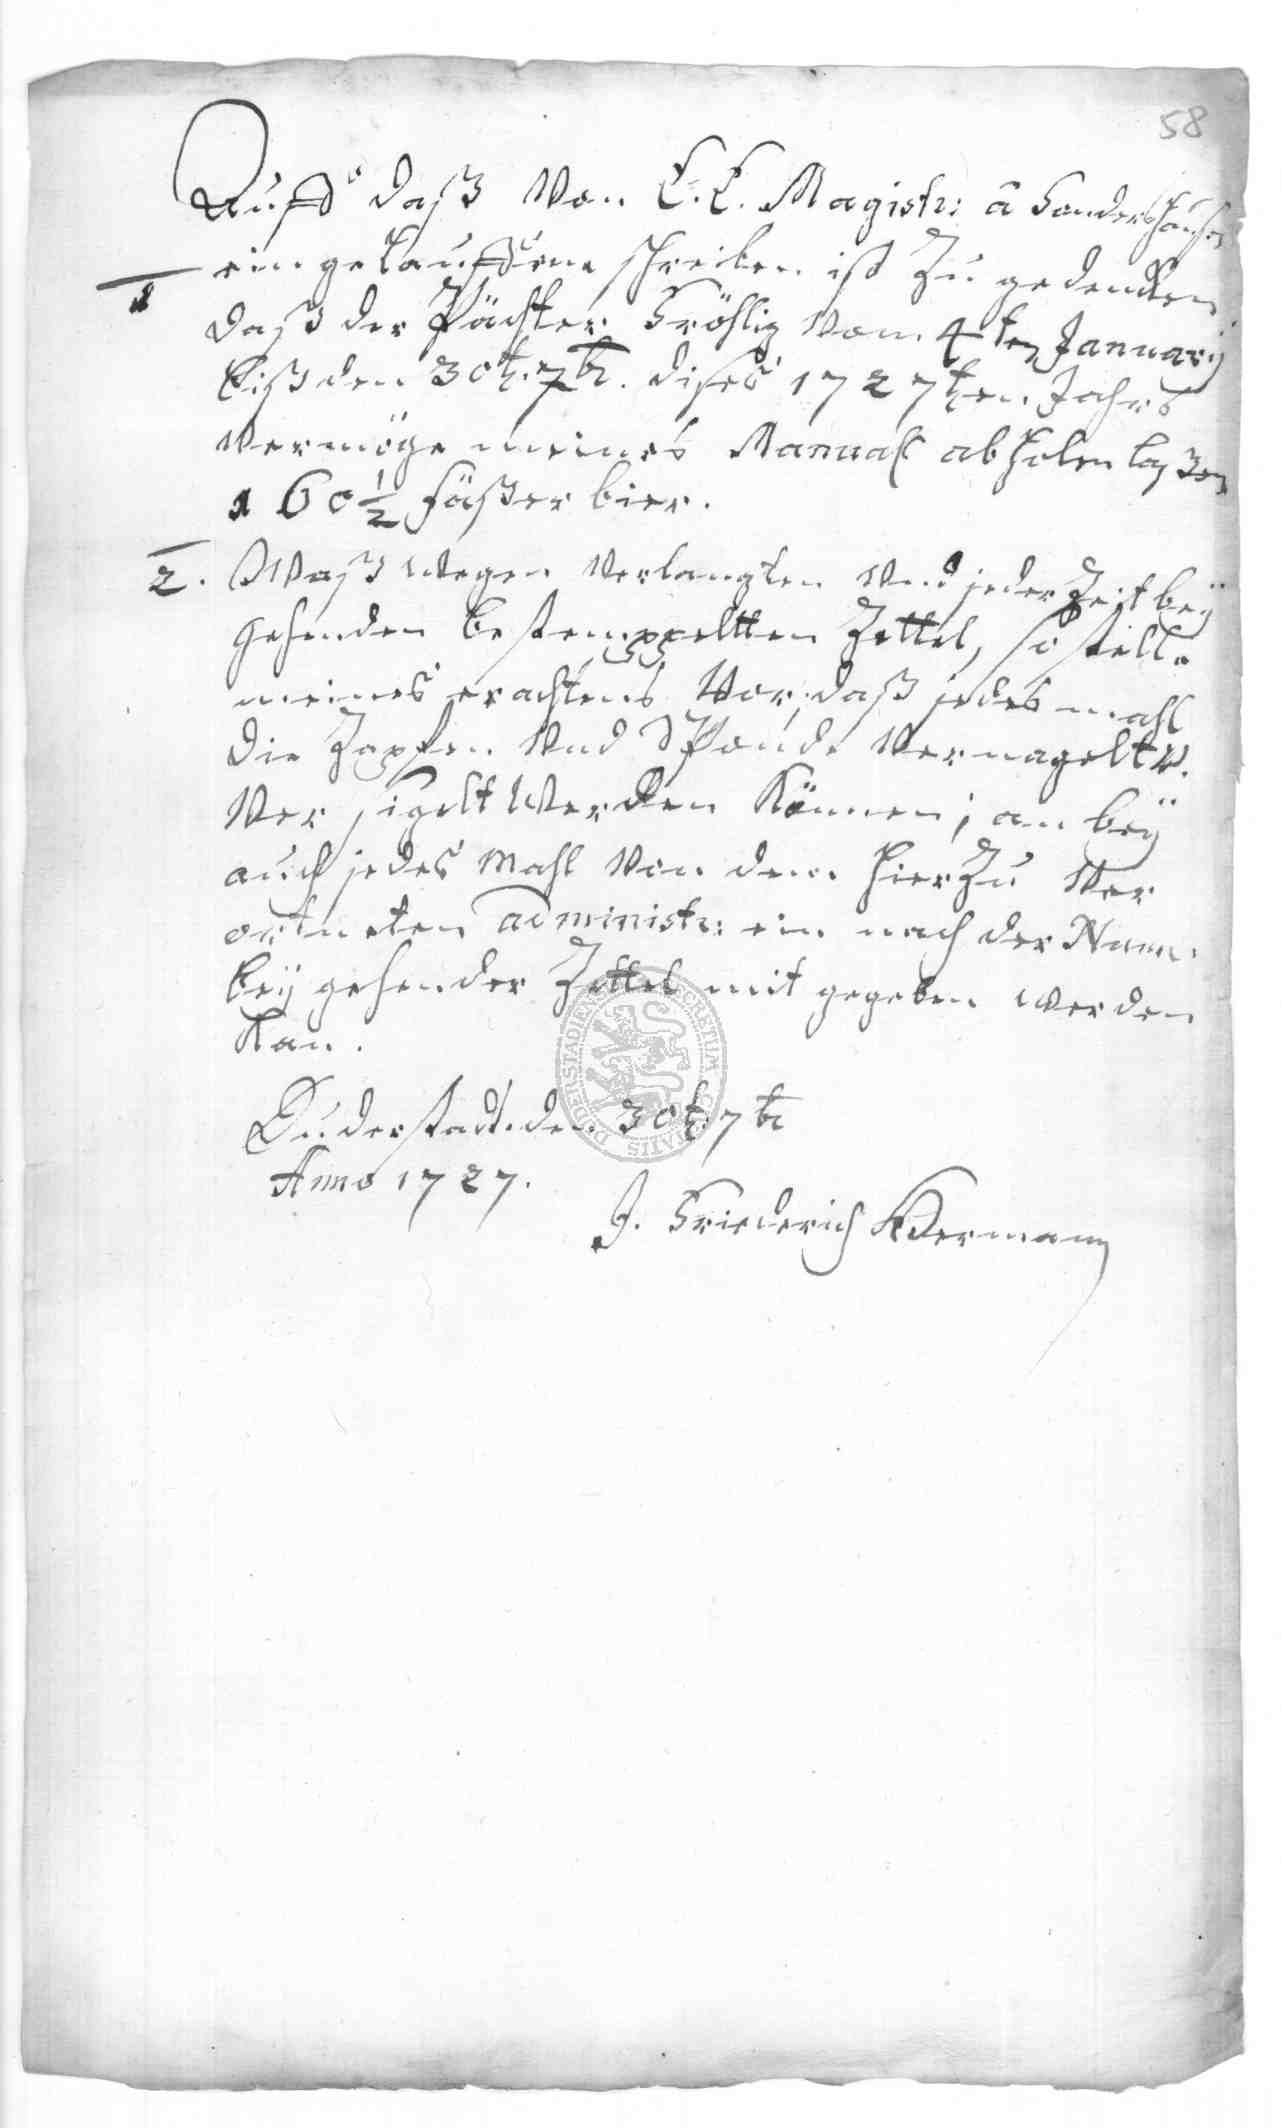 58
Auff daß Von E. E. Magistr: â Sondershausen
eingelauffene schreiben ist Zu gedencken
1 daß der Pächter Fröhlig Vom 4ten January
biß den 30t. 7br. dises 1727ten Jahrs
Vermöge meines Manuals abholen laßen
160½ fäßer bier.
2. Waß wegen Verlangten Vnd jeder Zeit beÿ
gehenden bestemppeltten Zettel, so stelle
meines erachtens Vor, daß jedes mahl
die Zapfen Vnd SPonde Vernagelt V.
Versigelt Werden Können; an beÿ
auch jedes Mahl Von dem hierZu Ver
ortneten administr: ein nach der Num.
beÿ gehender Zettel mit gegeben werden
Kan.
Duderstadt den 30t. 7br
Anno 1727.
J. Friederich